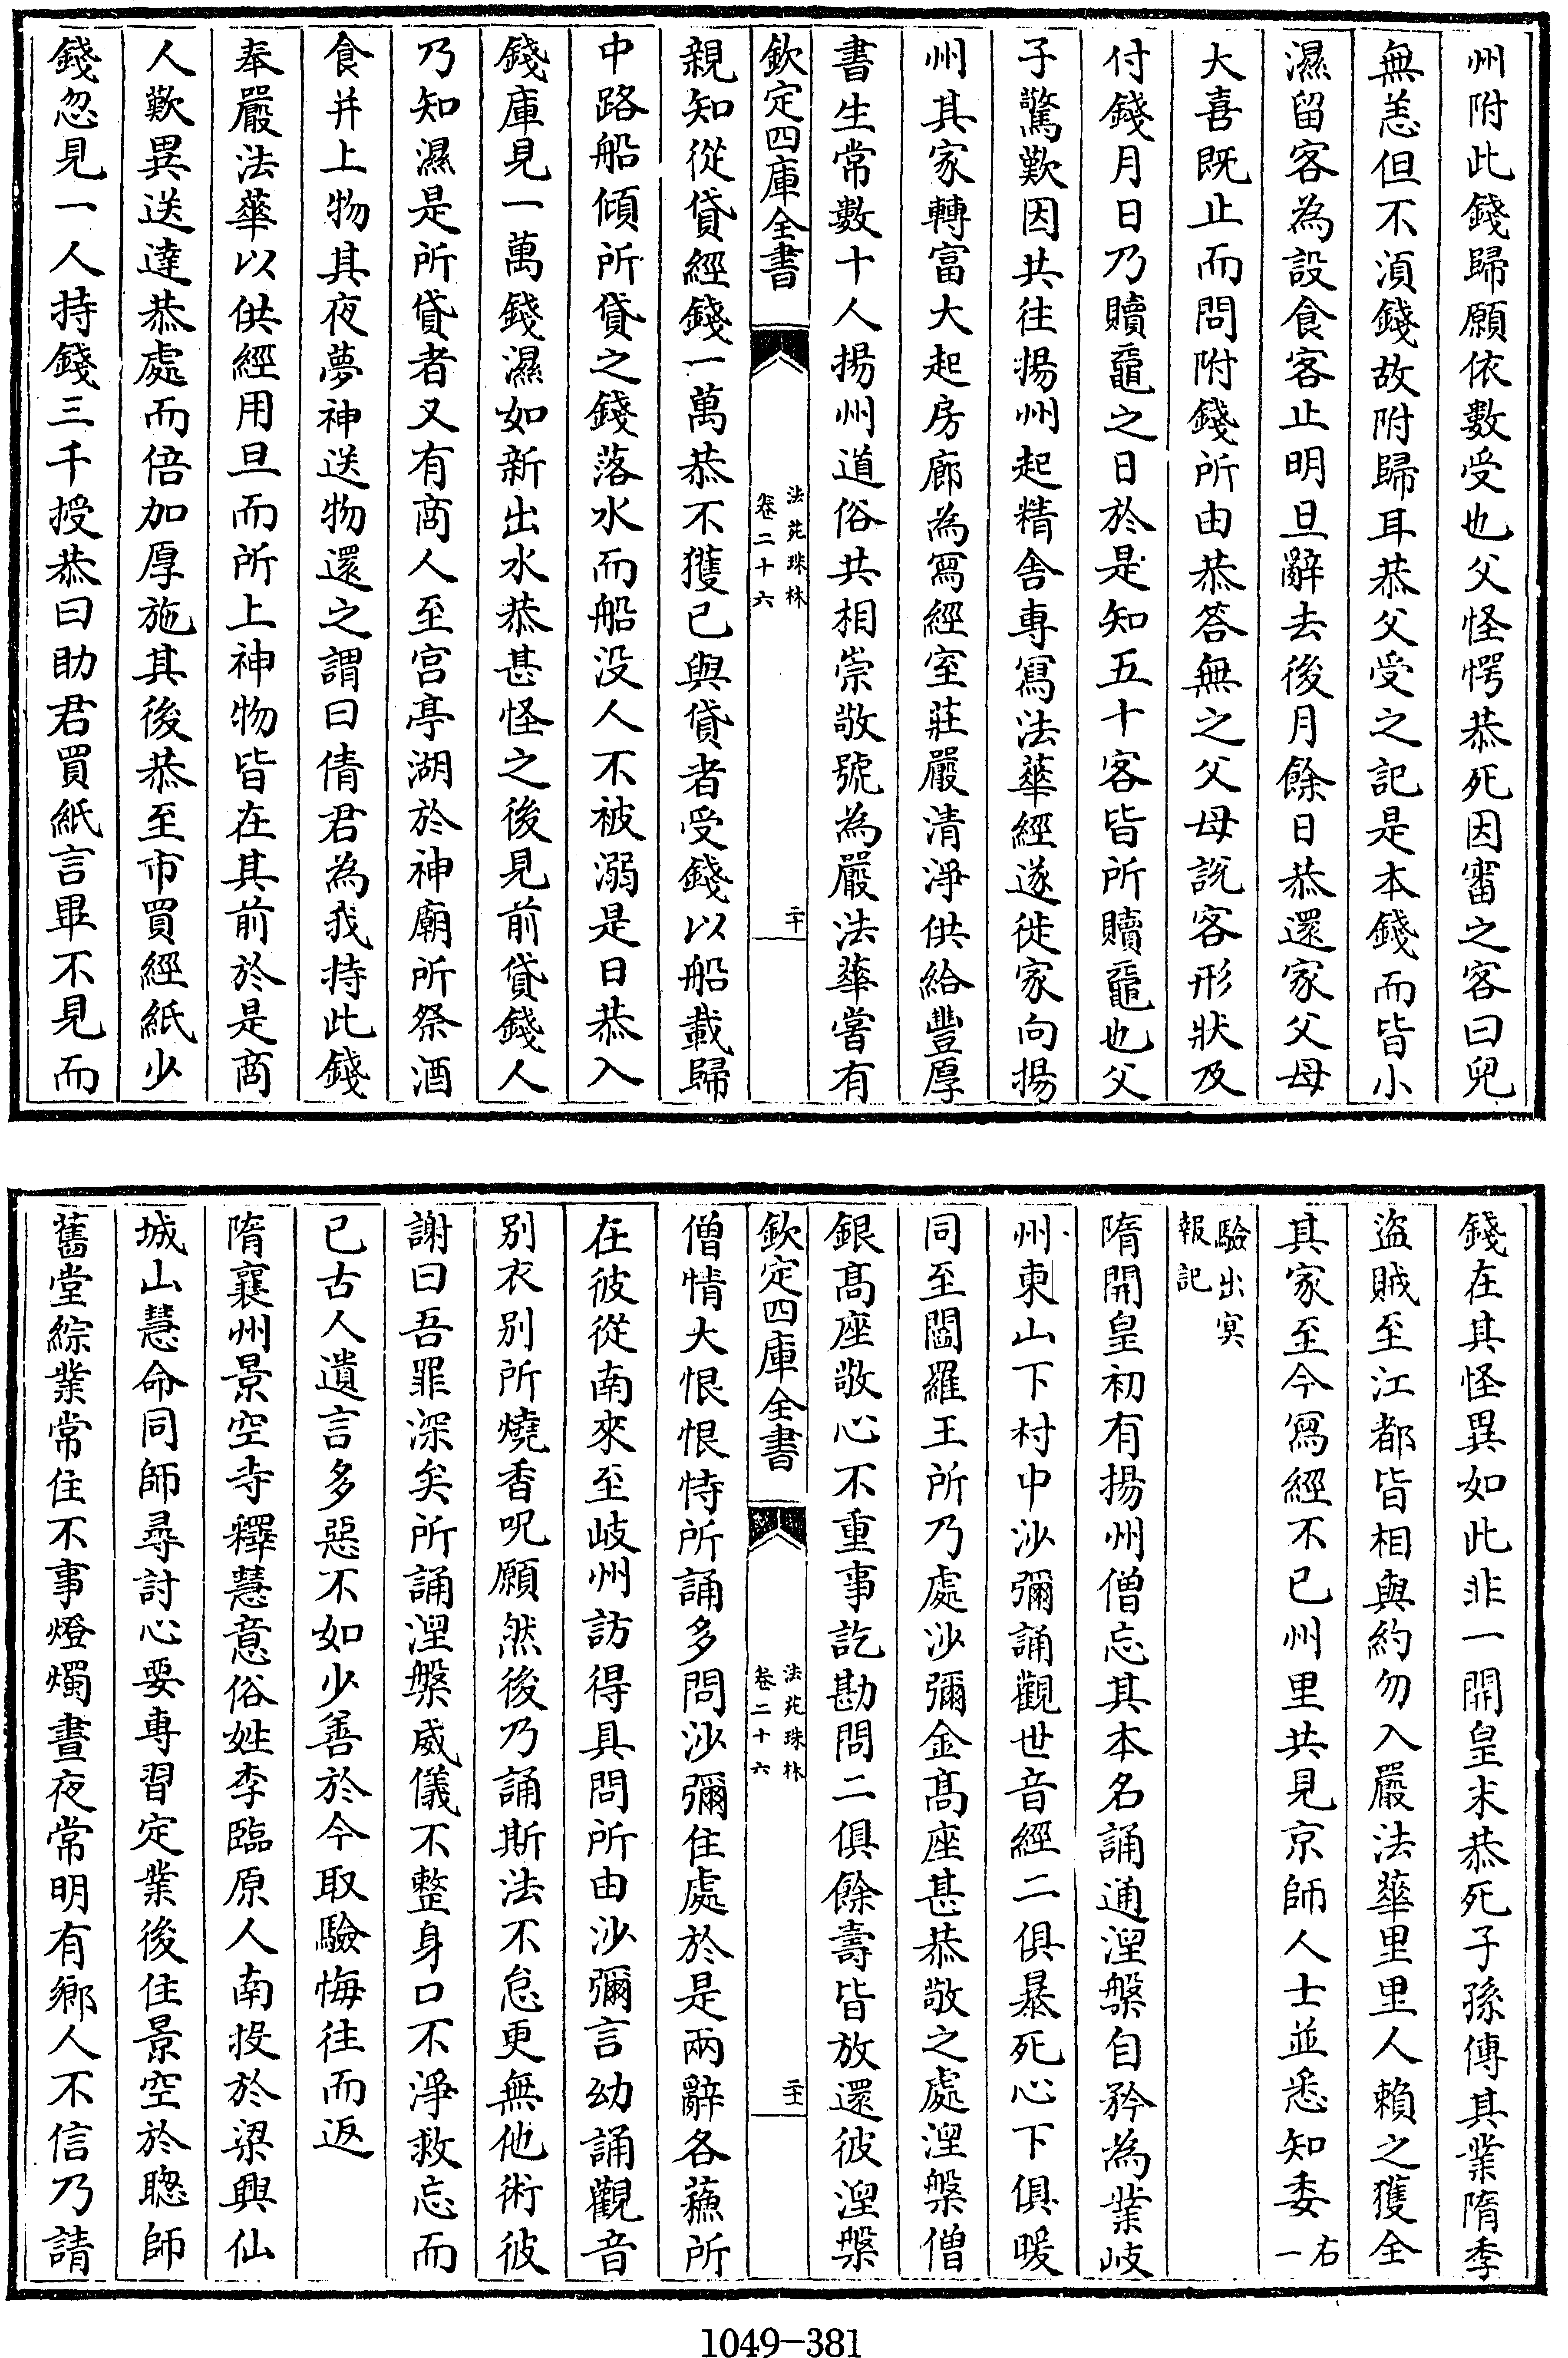 州附此錢歸願依數受也父怪愕恭死因審之客曰兒
無恙但不湏錢故附歸耳恭父受之記是本錢而皆小
濕留客為設食客止明旦辭去後月餘日恭還家父母
大喜既止而問附錢所由恭答無之父母說客形狀及
付錢月日乃贖黿之日於是知五十客皆所贖黿也父
子驚歎因共往揚州起精舍專寫法華經遂徙家向揚
州其家轉富大起房廊為寫經室莊嚴清淨供給豐厚
書生常數十人揚州道俗共相崇敬號為嚴法華嘗有
欽定四庫全書
法苑珠林
卷二十六
二十
親知從貸經錢一萬恭不獲已與貸者受錢以船載歸
中路船傾所貸之錢落水而船没人不被溺是日恭入
錢庫見一萬錢濕如新出水恭甚怪之後見前貸錢人
乃知濕是所貸者又有商人至宫亭湖於神廟所祭酒
食并上物其夜夢神送物還之謂曰倩君為我持此錢
奉嚴法華以供經用旦而所上神物皆在其前於是商
人歎異送達恭處而倍加厚施其後恭至市買經紙少
錢忽見一人持錢三千授恭曰助君買紙言畢不見而
錢在其怪異如此非一開皇末恭死子孫傳其業隋季
盜賊至江都皆相與約勿入嚴法華里里人賴之獲全
其家至今寫經不已州里共見京師人士並悉知委右一
驗出冥
報記
隋開皇初有揚州僧忘其本名誦通涅槃自矜為業岐
州東山下村中沙彌誦觀世音經二俱暴死心下俱暖
同至閻羅王所乃處沙彌金髙座甚恭敬之處涅槃僧
銀髙座敬心不重事訖勘問二俱餘壽皆放還彼涅槃
欽定四庫全書
法苑珠林
卷二十六
二十一
僧情大恨恨恃所誦多問沙彌住處於是兩辭各蘓所
在彼從南來至岐州訪得具問所由沙彌言幼誦觀音
别衣别所燒香呪願然後乃誦斯法不怠更無他術彼
謝曰吾罪深矣所誦涅槃威儀不整身口不淨救忘而
已古人遺言多惡不如少善於今取驗悔往而返
隋襄州景空寺釋慧意俗姓李臨原人南投於梁興仙
城山慧命同師尋討心要專習定業後住景空於聰師
舊堂綜業常住不事燈燭晝夜常明有鄉人不信乃請
1049-381